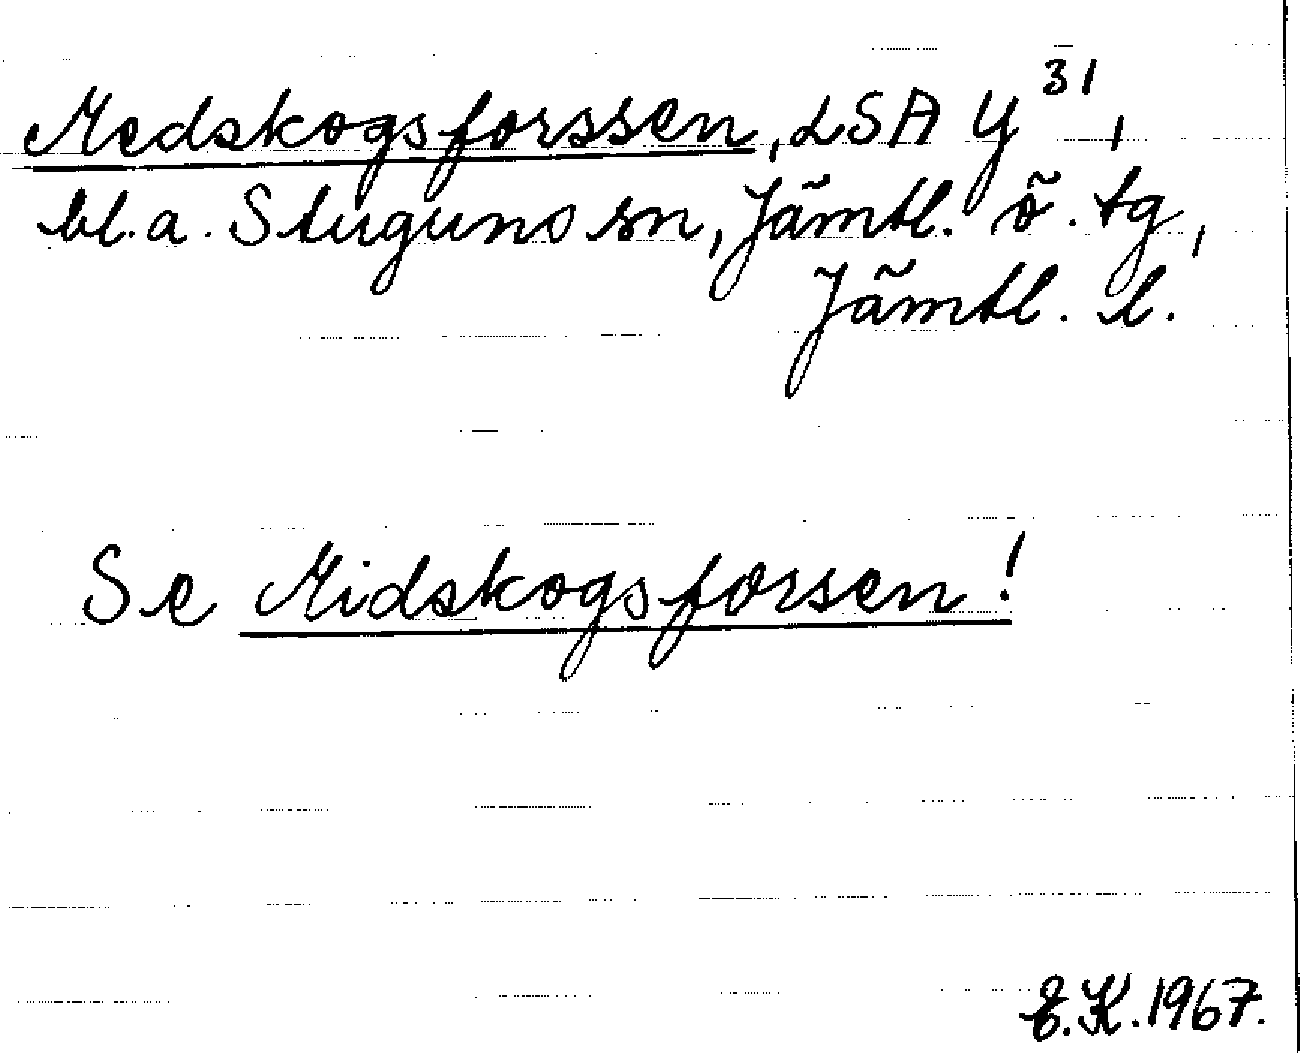 Medskogsforssen, LSA Y³¹,
bl.a. Stuguns sn, Jämtl. ö. tg,
Jämtl. l.
Se Midskogsforsen!
E.K. 1967.